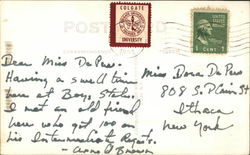 POST
COLGATE
UNIVERSITY
1 CENT 1
Dear Miss DePew
Having a swell time
here at Boy. State.
I met an old friend
here who got 100 on
his Intermediate Regents.
Miss Dora DePew
808 S. Plain St
Ithaca
New York